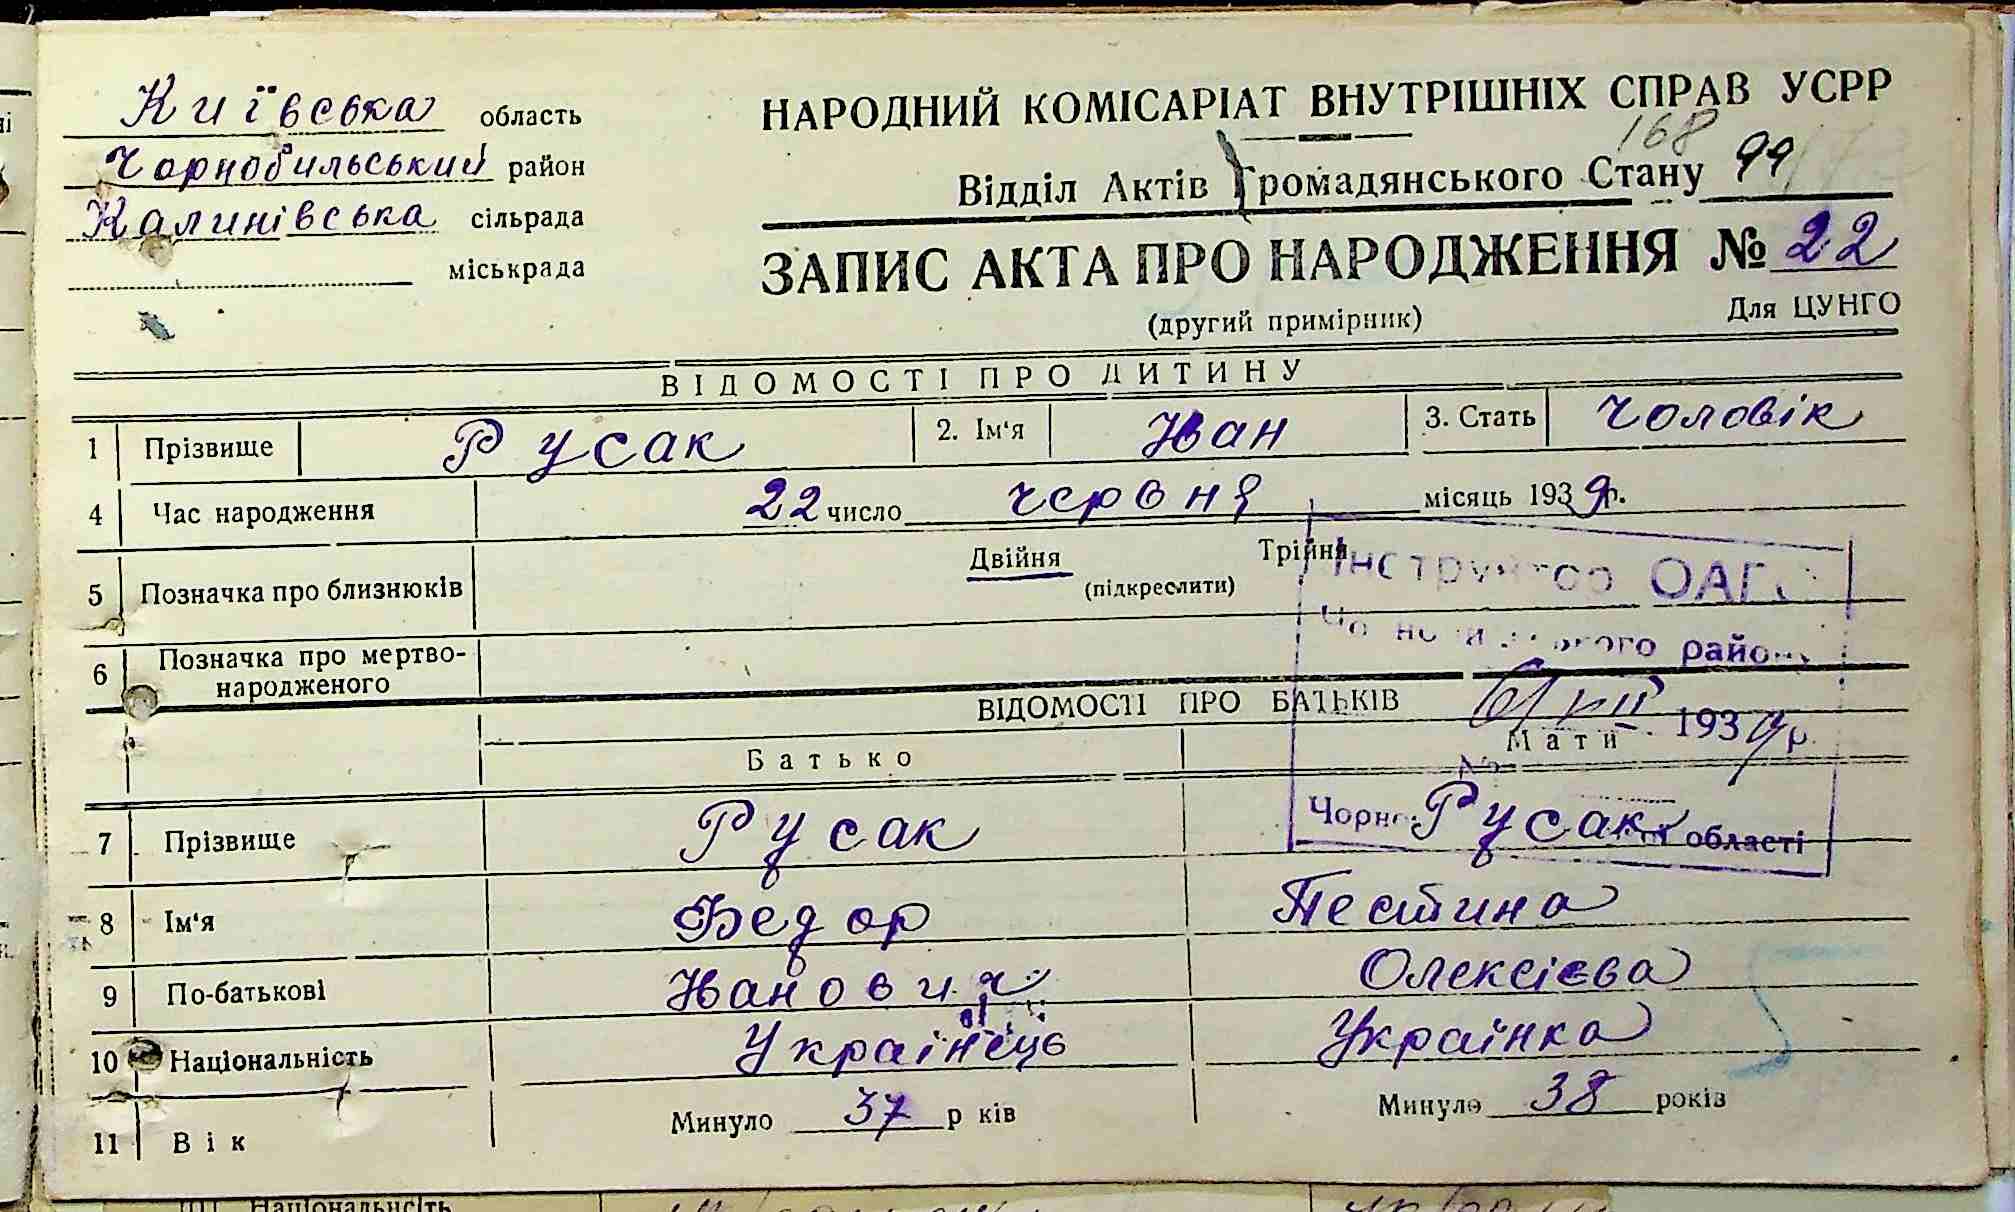 Київська область
Чорнобильський район
Калинівська сільрада
міськрада
НАРОДНИЙ КОМІСАРІАТ ВНУТРІШНІХ СПРАВ УСРР
168
Відділ Актів Громадянського Стану 99
ЗАПИС АКТА ПРО НАРОДЖЕННЯ № 22
(другий примірник) Для ЦУНГО
ВІДОМОСТІ ПРО ДИТИНУ
1 Прізвище Русак 2. Ім'я Иван 3. Стать Чоловік
4 Час народження 22 число червня місяць 1939 р.
5 Позначка про близнюків Двійня Трійня (підкреслити)
Інструктор ОАГС
району
6 Позначка про мертвонародженого
ВІДОМОСТІ ПРО БАТЬКІВ
VII 193 р.
Батько Мати
№
7 Прізвище Русак Русак
Чорно області
8 Ім'я Федор Пестина
9 По-батькові Иванович Олексієва
10 Національність Украінець Украінка
11 Вік Минуло 37 р ків Минуло 38 років
Національність